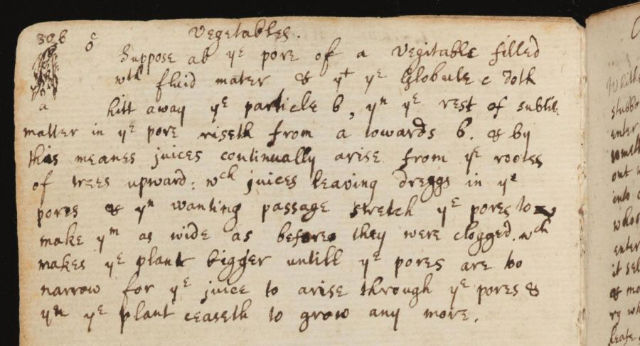 Vegetables.
Suppose ab yᵉ pore of a Vegitable filled
wᵗʰ fluid mater & yᵗ yᵉ Globule c doth
hitt away yᵉ particle b, yⁿ yᵉ rest of subtile
matter in yᵉ pore riseth from a towards b. & by
this meanes juices continually arise from yᵉ roots
of trees upward: wᶜʰ juices leaving dreggs in yᵉ
pores & yⁿ wanting passage stretch yᵉ pores to
make yᵐ as wide as before they were clogged. wᶜʰ
makes yᵉ plant bigger untill yᵉ pores are too
narrow for yᵉ juice to arise through yᵉ pores &
yⁿ yᵉ plant ceaseth to grow any more.